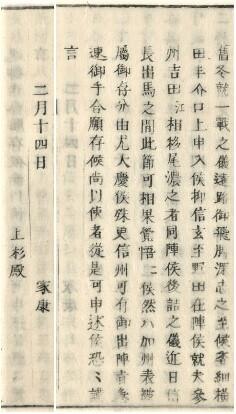 舊冬就一戰之儀遠路御飛脚渾志之至候委細權
田半介口上申入候抑信玄至野田在陣候就夫參
州吉田江相移尾濃之者同陣侯後詰之儀近日信
長出馬之間此節可相果覺悟ニ候然ハ加州表被
屬御存分由尤大慶候殊更信州可有御出陣旨急
速御手合願存候尚以使者從是可申述候恐々謹
言
二月十四日
家康
上杉殿